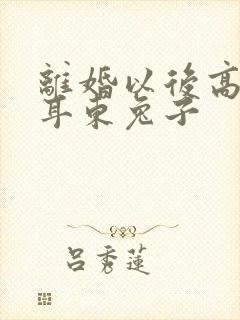 離婚以後高
耳東兔子
呂秀蓮